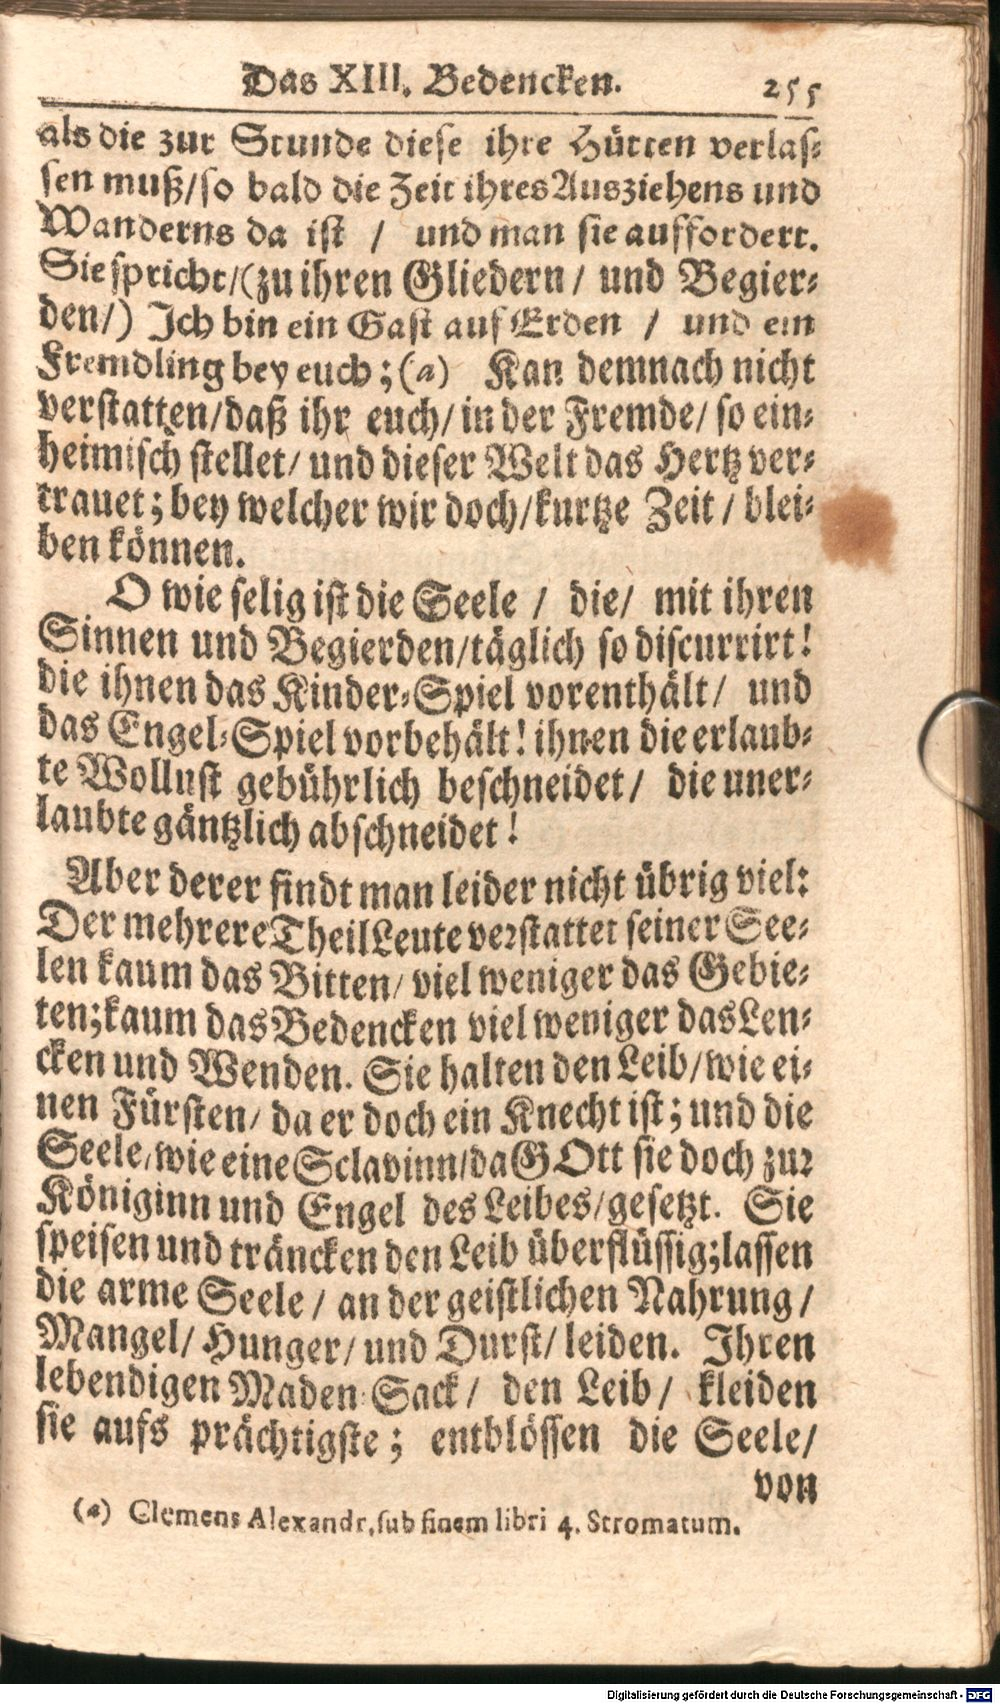 Das XIII. Bedencken. 255
als die zur Stunde diese ihre Hütten verlas-
sen muß/so bald die Zeit ihres Ausziehens und
Wanderns da ist / und man sie auffordert.
Sie spricht/(zu ihren Gliedern/ und Begier-
den/) Ich bin ein Gast auf Erden / und ein
Fremdling bey euch;(a) Kan demnach nicht
verstatten/daß ihr euch/in der Fremde/so ein-
heimisch stellet/ und dieser Welt das Hertz ver-
trauet; bey welcher wir doch/kurtze Zeit/blei-
ben können.
O wie selig ist die Seele / die/ mit ihren
Sinnen und Begierden/täglich so discurrirt!
die ihnen das Kinder-Spiel vorenthält/ und
das Engel-Spiel vorbehält! ihnen die erlaub-
te Wollust gebührlich beschneidet/ die uner-
laubte gäntzlich abschneidet!
Aber derer findt man leider nicht übrig viel:
Der mehrere Theil Leute verstattet seiner See-
len kaum das Bitten/ viel weniger das Gebie-
ten;kaum das Bedencken viel weniger das Len-
cken und Wenden. Sie halten den Leib/wie ei-
nen Fürsten/ da er doch ein Knecht ist; und die
Seele/wie eine Sclavinn/da GOtt sie doch zur
Königinn und Engel des Leibes/gesetzt. Sie
speisen und träncken den Leib überflüssig;lassen
die arme Seele / an der geistlichen Nahrung/
Mangel/ Hunger/ und Durst/ leiden. Ihren
lebendigen Maden-Sack/ den Leib/ kleiden
sie aufs prächtigste; entblössen die Seele/
von
(a) Clemens Alexandr. sub finem libri 4. Stromatum.
Digitalisierung gefördert durch die Deutsche Forschungsgemeinschaft - DFG